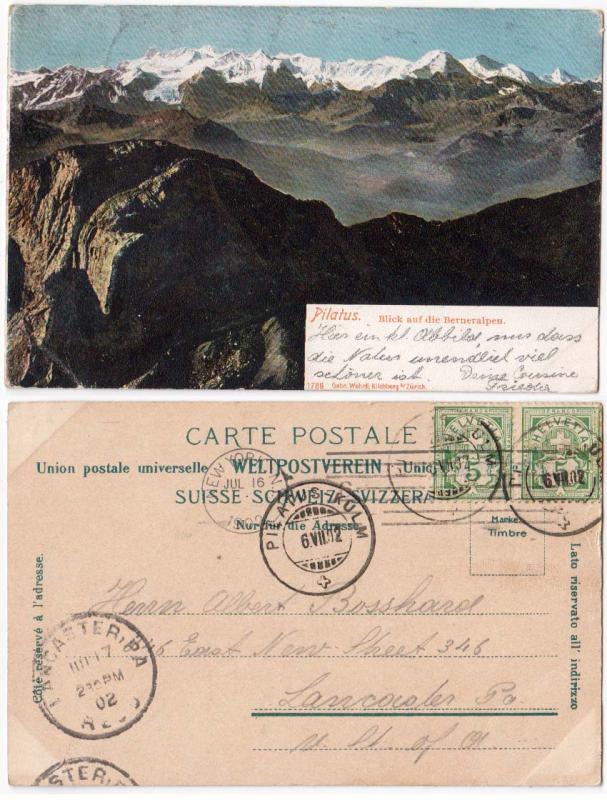 Pilatus. Blick auf die Berneralpen.
Hier ein kl. Abbild, nur dass
die Natur unendlich viel
schöner ist. Deine Cousine
Frieda
1786 Gebr. Wehrli, Kilchberg b/Zürich.
CARTE POSTALE
Union postale universelle WELTPOSTVEREIN Unio
SUISSE SCHWEIZ SVIZZERA
Nur für die Adresse
HELVETIA
FRANCO
5
HELVETIA
FRANCO
5
6.VII.02
Marke.
Timbre
NEW YORK, N.
JUL 16
PILATUS-KULM
6.VII.02
Côté réservé à l'adresse.
Lato riservato all' indirizzo
Herrn Albert Bosshard
East New Street 346
Lancaster Pa.
U. St. of A.
LANCASTER, PA
17
230PM
02
REC'D
STER, P